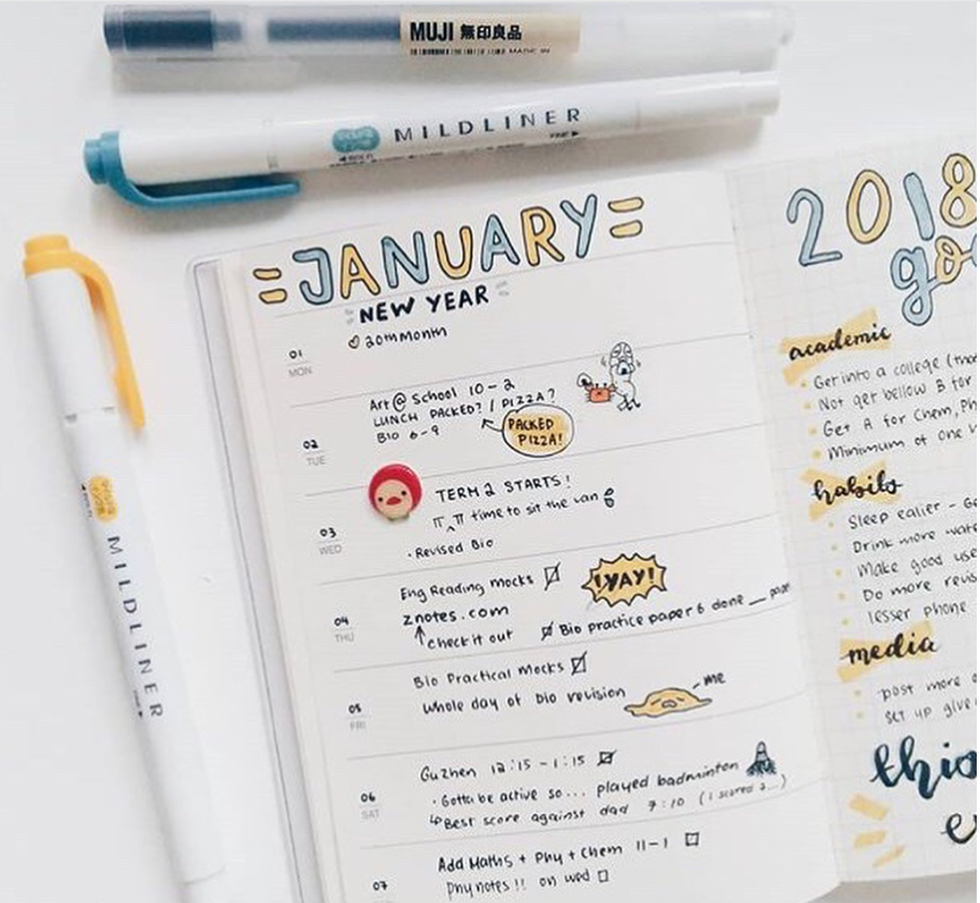 MUJI 無印良品
MADE IN
MILDLINER
MILDLINER
JANUARY
NEW YEAR
20th Month
01
MON
Art @ School 10-2
LUNCH PACKED? / PIZZA?
BIO 6-9
PACKED
PIZZA!
02
TUE
TERM 2 STARTS!
time to sit the van
• Revised Bio
03
WED
Eng Reading mocks
!YAY!
znotes.com
check it out
Bio practice paper 6 done
04
THU
Bio Practical Mocks
whole day of bio revision
me
05
FRI
Guzhen 12:15 - 1:15
• Gotta be active so... played badminton
Best score against dad 7:10 (i scored 2...)
06
SAT
Add Maths + Phy + Chem 11-1
Phy notes!! on wed
07
2018
go
academic
Get into a college (tha
Not get bellow B for
Get A for Chem, Ph
Minimum of one
habits
Sleep ealier - Ge
Drink more wate
Make good use
Do more revis
lesser phone
media
post more
set up give
thi
e